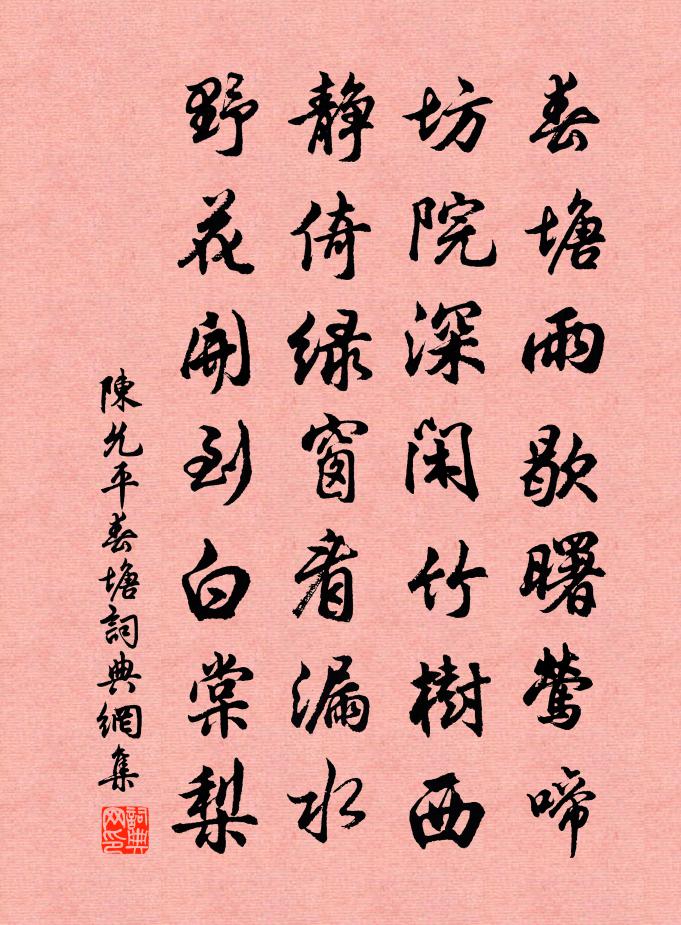 春塘雨歇曙莺啼
坊院深闲竹樹西
静倚绿窗看漏水
野花開到白棠梨
陳允平春塘詞典網集
詞典
网印